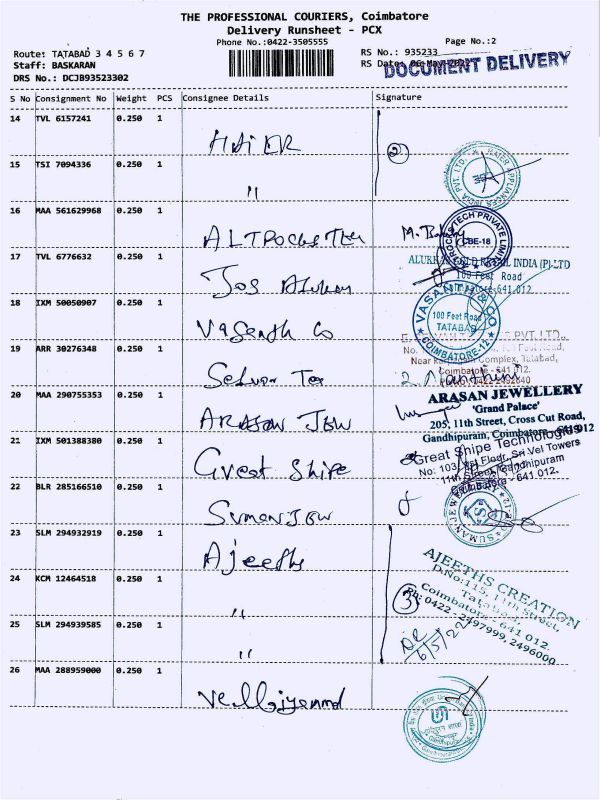 THE PROFESSIONAL COURIERS, Coimbatore
Delivery Runsheet - PCX
Phone No.:0422-3505555
Page No.:2
Route: TATABAD 3 4 5 6 7
RS No.: 935233
Staff: BASKARAN
RS Date: 06-May-2022
DOCUMENT DELIVERY
DRS No.: DCJB93523302
S No Consignment No Weight PCS Consignee Details Signature
14 TVL 6157241 0.250 1
HAiER
2
15 TSI 7094336 0.250 1
"
16 MAA 561629968 0.250 1
M.
CBE-18
17 TVL 6776632 0.250 1
ALUKKAS GOLD RETAIL INDIA (P) LTD
100 Feet Road
Jos Alukkas
18 IXM 50050907 0.250 1
VASANTH & CO
100 Feet Road
TATABAD
COIMBATORE-12
Vasanth Co
19 ARR 30276348 0.250 1
Complex, Tatabad,
Coimbatore - 641 012.
Selvan Tex
20 MAA 290755353 0.250 1
ARASAN JEWELLERY
'Grand Palace'
205, 11th Street, Cross Cut Road,
Gandhipuram, Coimbatore
ARASAN JEW
21 IXM 501388380 0.250 1
Great Shipe Technologies
No: 103, Ist Floor, Sri Vel Towers
11th Street, Gandhipuram
Coimbatore - 641 012.
Great Shipe
22 BLR 285166510 0.250 1
SUMAN JEW
SUMAN JEW
23 SLM 294932919 0.250 1
Ajeeths
AJEETHS CREATION
D.No:115, 11th Street,
Tatabad,
Coimbatore - 641 012.
Ph: 0422 - 2497999, 2496000
24 KCM 12464518 0.250 1
"
3
25 SLM 294939585 0.250 1
"
6/5/22
26 MAA 288959000 0.250 1